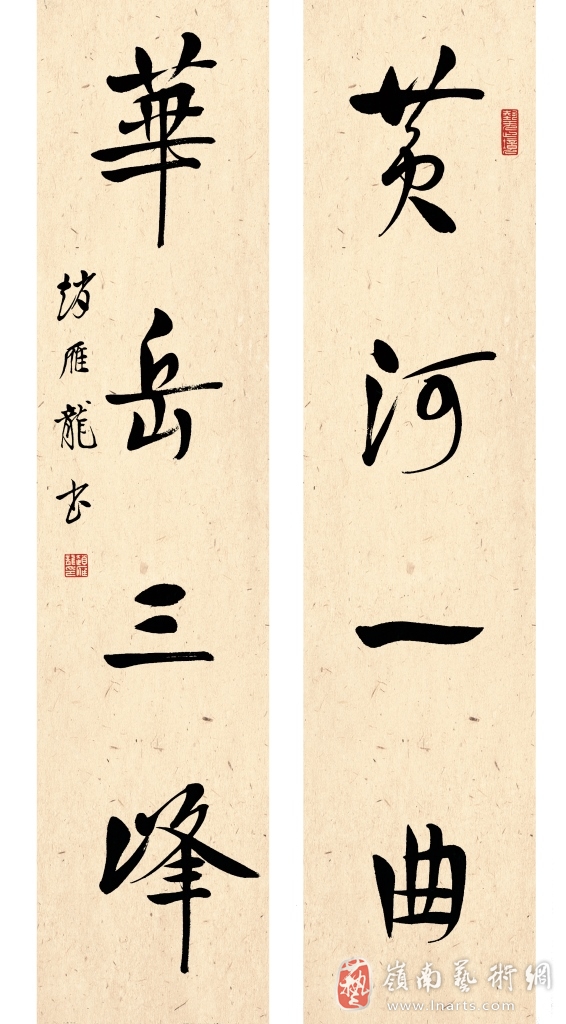 黄河一曲
華岳三峰
趙雁龍书
嶺南藝術網
www.lnarts.com